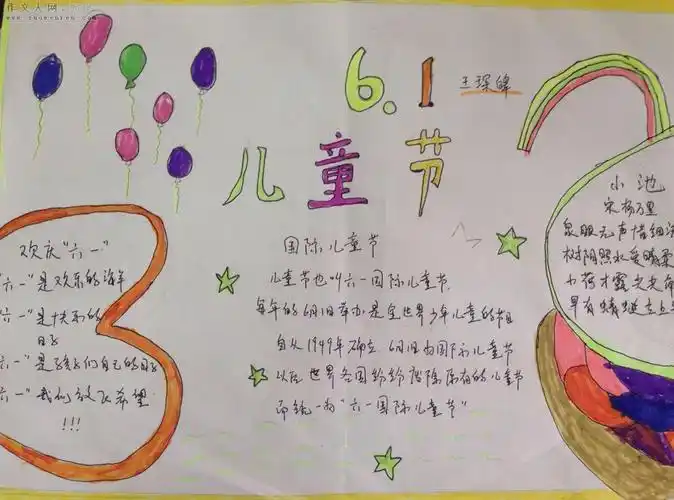 作文人网
www.zuowenren.com
6.1
王琛皞
儿童节
欢庆"六一"
"六一"是欢乐的海洋
"六一"是快乐的
日子
"六一"是孩子们自己的日子
"六一"我们放飞希望
!!!
国际儿童节
儿童节也叫六一国际儿童节,
每年的6月1日举办是全世界少年儿童的节日
自从1949年确立6月1日为国际儿童节
以后世界各国纷纷废除原有的儿童节
而统一为"六一国际儿童节"
小池
宋 杨万里
泉眼无声惜细流
树阴照水爱晴柔
小荷才露尖尖角
早有蜻蜓立上